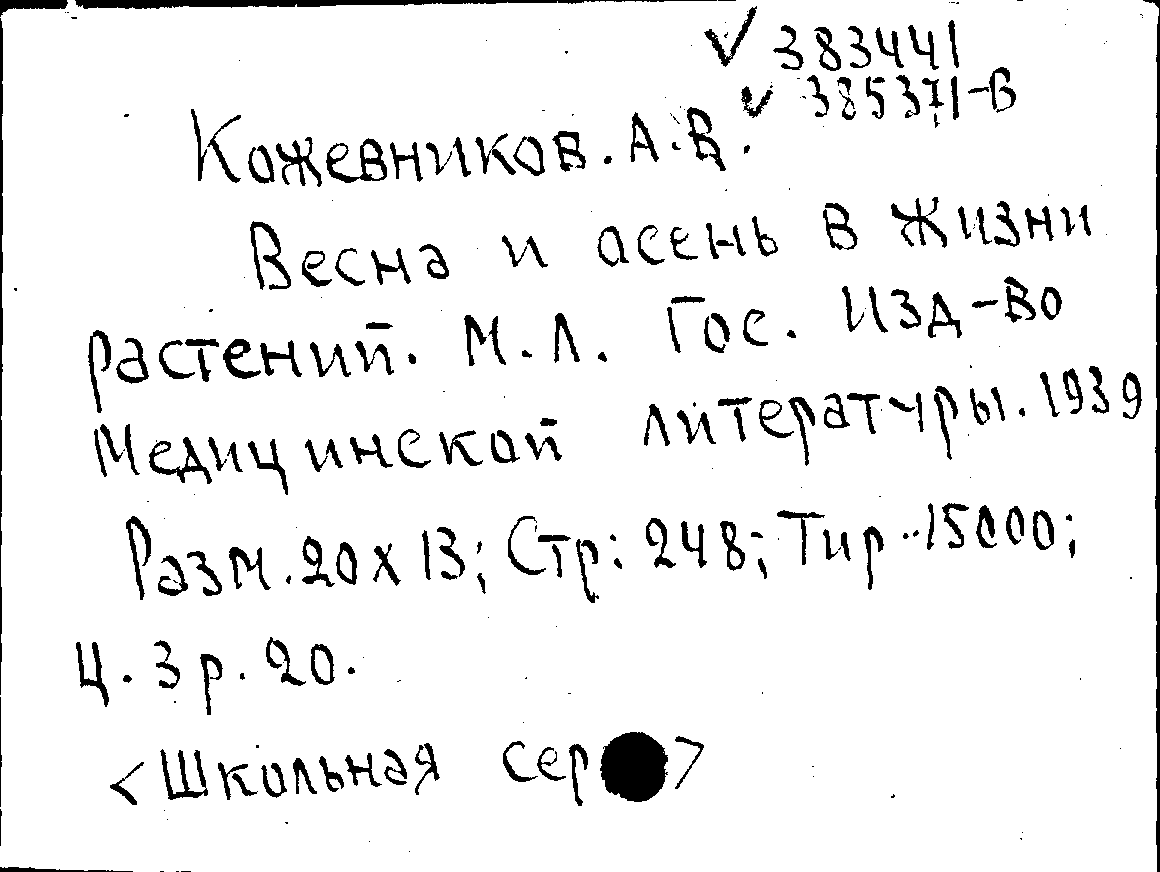 ✓ 383441
✓ 385371-В
Кожевников. А.В.
Весна и асень в жизни
растений. М.Л. Гос. Изд-во
Медицинской литературы. 1939
Разм. 20 x 13; Стр: 248; Тир. 15000;
Ц. 3 р. 20.
<Школьная сер >